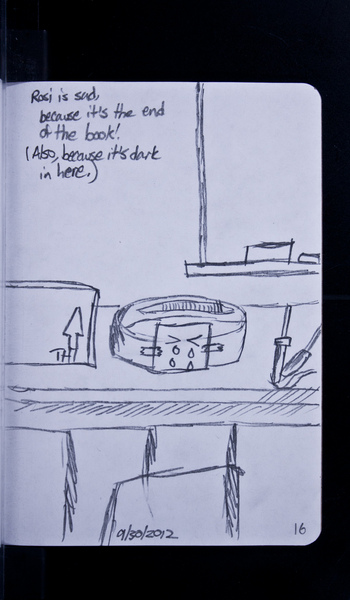 Rosi is sad,
because it's the end
of the book!
(Also, because it's dark
in here.)
TH
9/30/2012
16